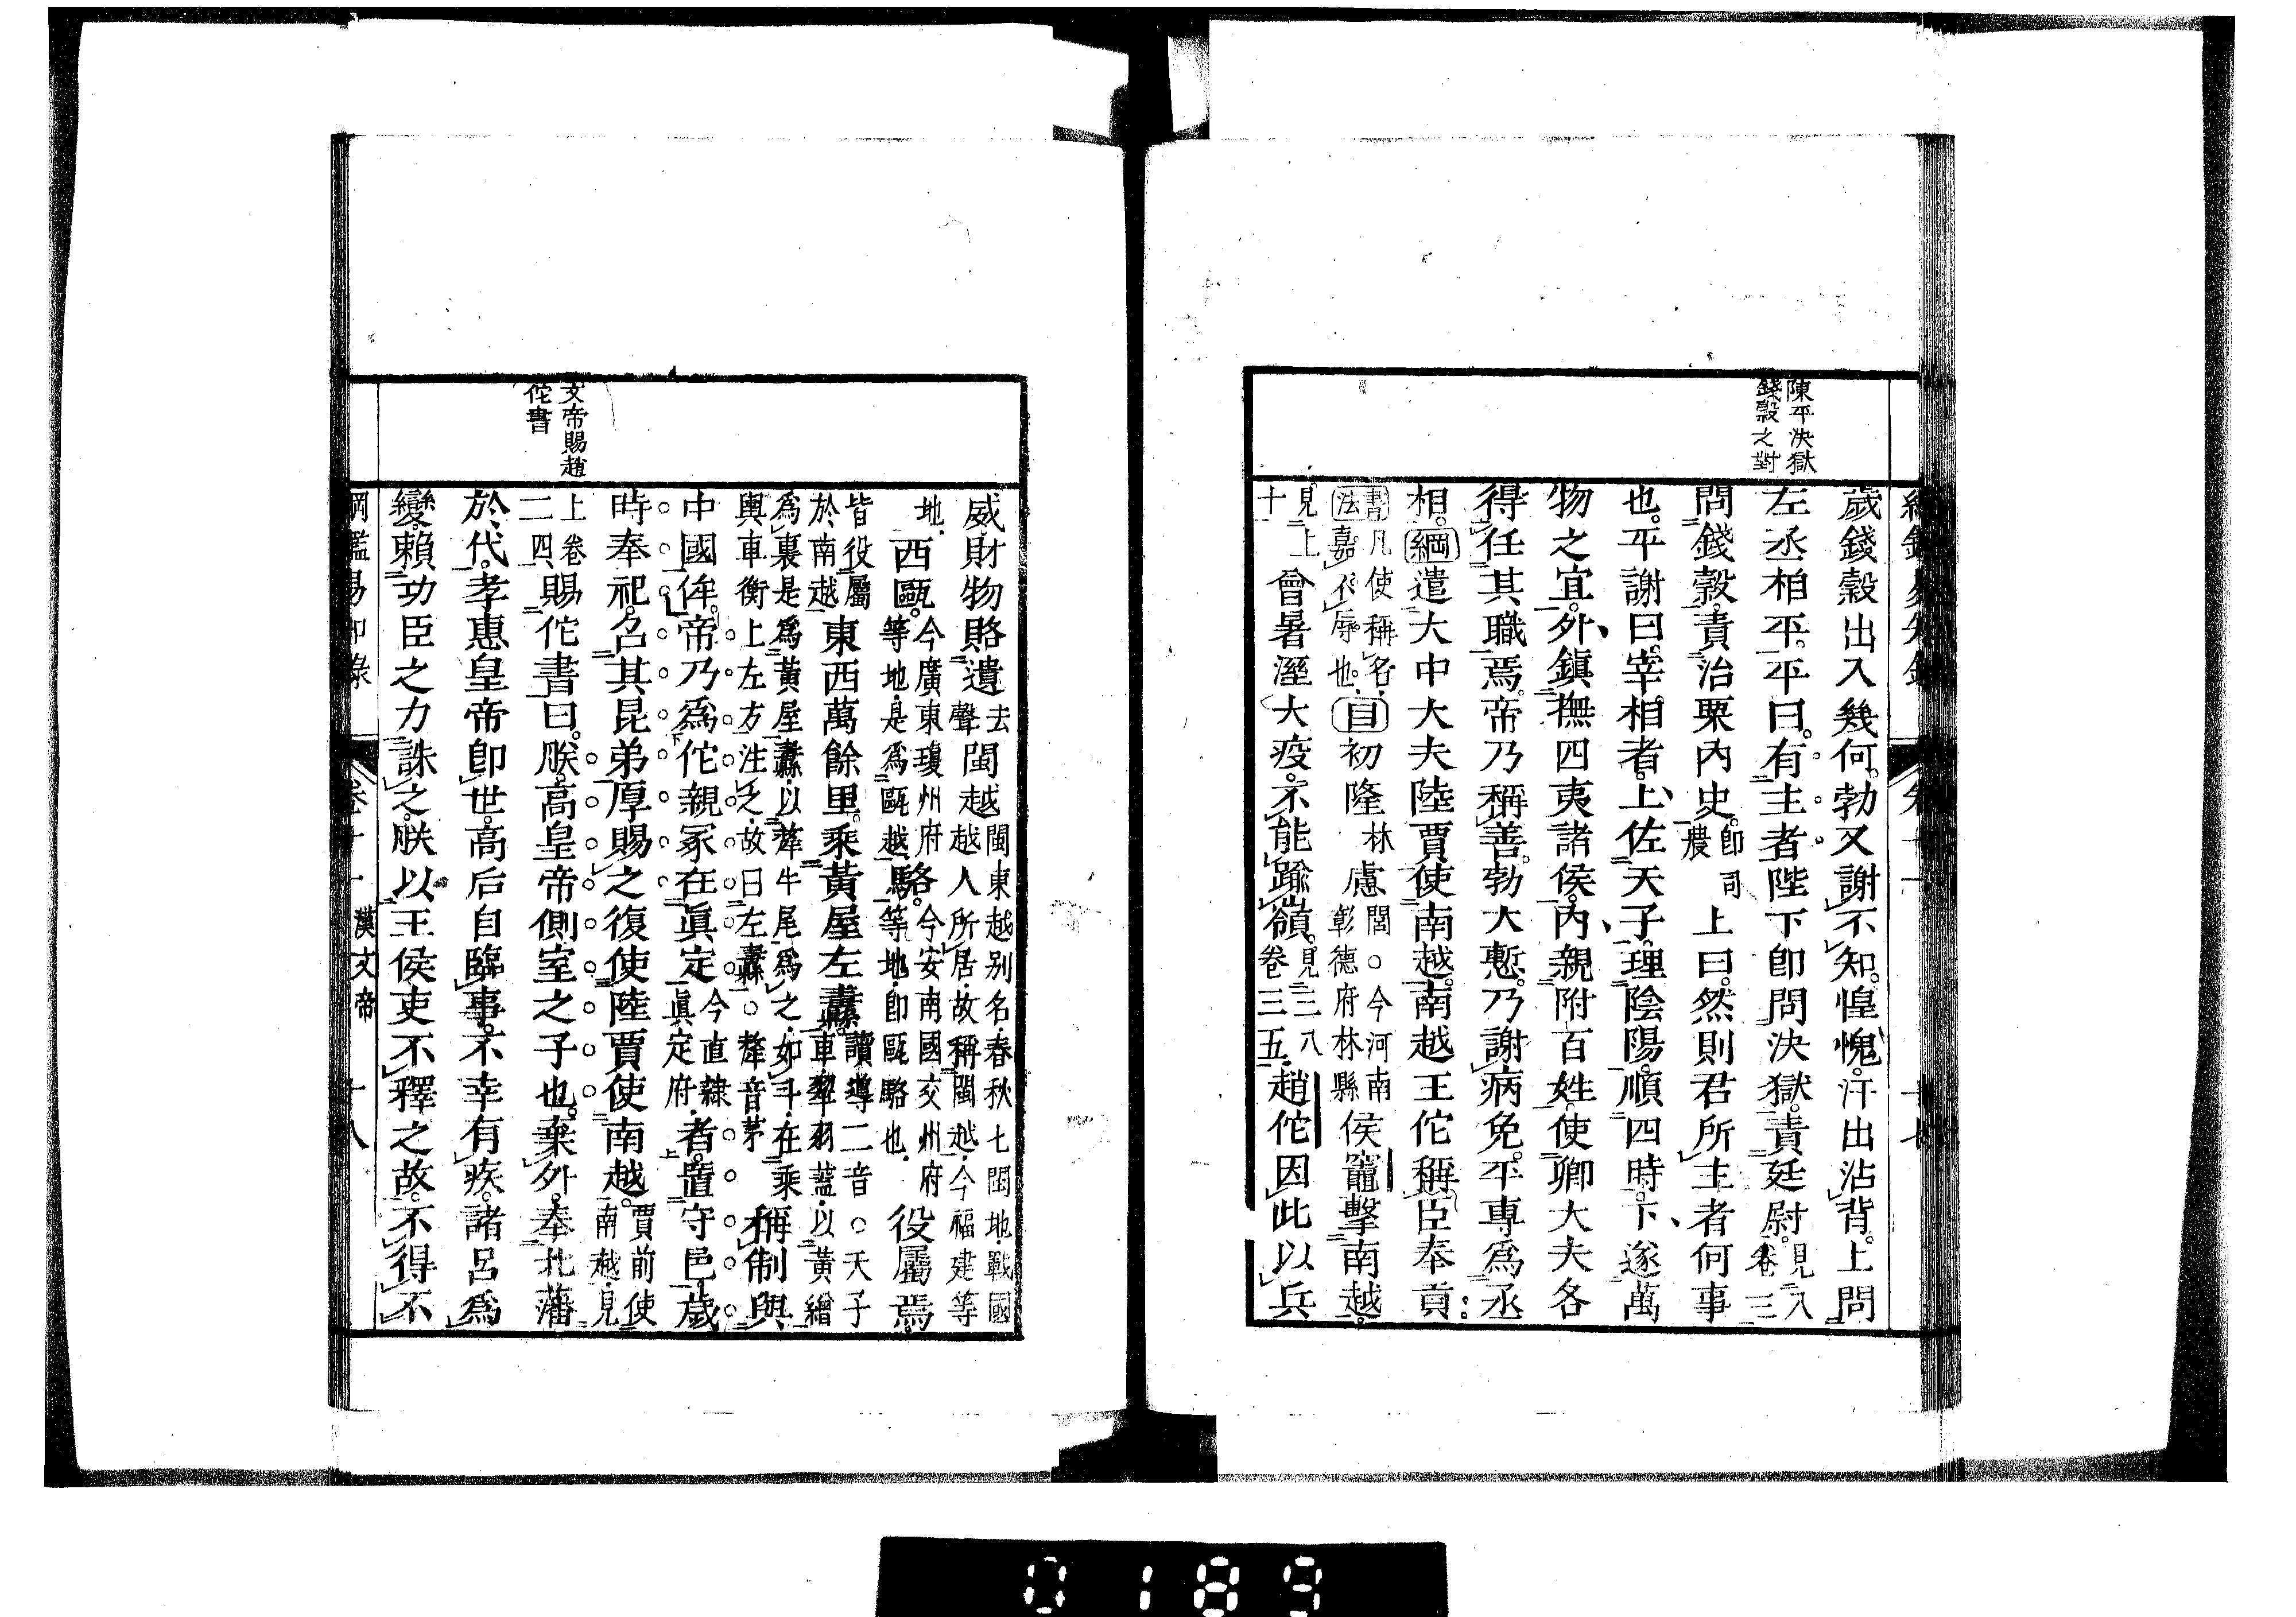 陳平決獄
錢穀之對
歲錢穀出入幾何。勃又謝不知。惶愧。汗出沾背。上問
左丞相平。平曰。有主者陛下卽問決獄。責廷尉。見八卷三
問錢穀。責治粟內史。卽司農上曰。然則君所主者何事
也。平謝曰。宰相者。上佐天子。理陰陽。順四時。下遂萬
物之宜。外鎭撫四夷諸侯。內親附百姓。使卿大夫各
得任其職焉。帝乃稱善。勃大慙。乃謝病免。平專爲丞
相。綱遣大中大夫陸賈使南越。南越王佗稱臣奉貢。
書法凡使稱名。嘉不辱也。目初隆林慮閭○今河南彰德府林縣侯竈擊南越。
見上十會暑溼大疫。不能踰嶺。見三八卷三五趙佗因此以兵
威財物賂遺去聲閩越閩東越别名春秋七閩地戰國越人所居故稱閩越今福建等
地西甌。今廣東瓊州府等地是爲甌越駱。今安南國交州府等地卽甌駱也役屬焉。
皆役屬於南越東西萬餘里。乘黃屋左纛。讀導二音○天子車翠羽蓋以黃繒
爲裏是爲黃屋纛以犛牛尾爲之如斗在乘輿車衡上左方注之故曰左纛○犛音茅稱制與
中國侔。帝乃爲佗親冢在眞定今直隸眞定府者。置守邑。歲
時奉祀。召其昆弟厚賜之復使陸賈使南越。賈前使南越見
上卷二四賜佗書曰。朕。高皇帝側室之子也。棄外。奉北藩
於代。孝惠皇帝卽世。高后自臨事。不幸有疾。諸呂爲
變。賴功臣之力。誅之。朕以王侯吏不釋之故。不得不
文帝賜趙
佗書
綱鑑易知錄 卷十一 漢文帝 十八
0189